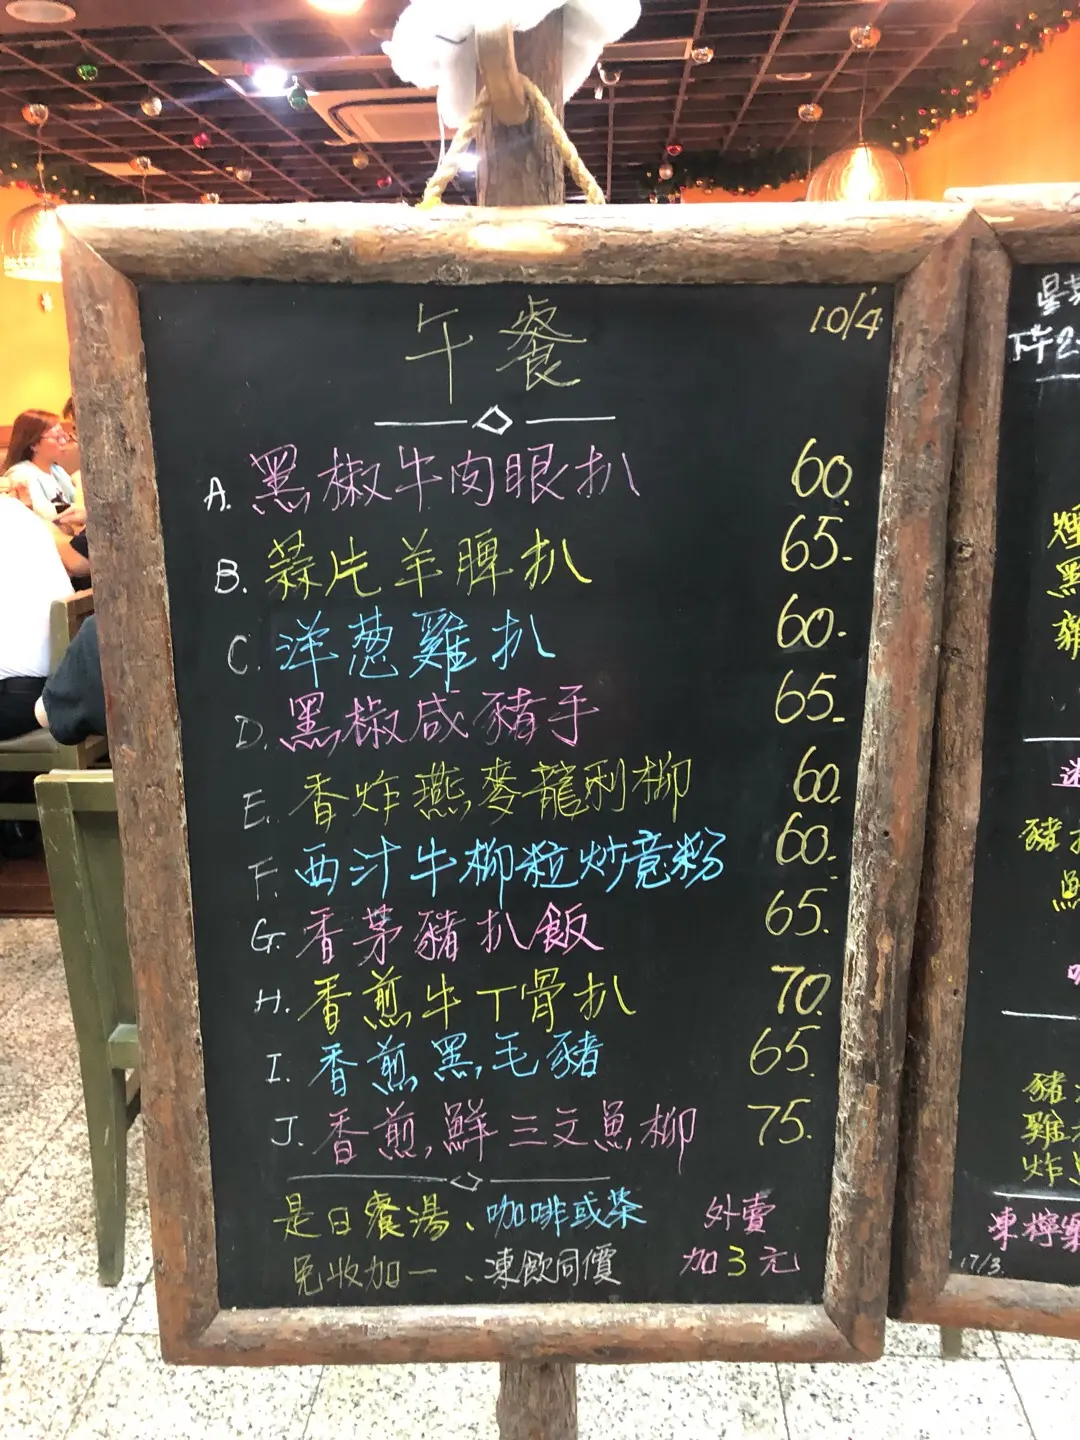 午餐
10/4
A. 黑椒牛肉眼扒 60.
B. 蒜片羊脾扒 65-
C. 洋葱雞扒 60-
D. 黑椒咸豬手 65-
E. 香炸燕麥龍利柳 60.
F. 西汁牛柳粒炒意粉 60.
G. 香茅豬扒飯 65.
H. 香煎牛丁骨扒 70.
I. 香煎黑毛豬 65.
J. 香煎鮮三文魚柳 75.
是日餐湯、咖啡或茶
免收加一、凍飲同價
外賣
加3元
星
下午2
黑
雞
迷
豬
豬
雞
炸
凍檸樂
17/3